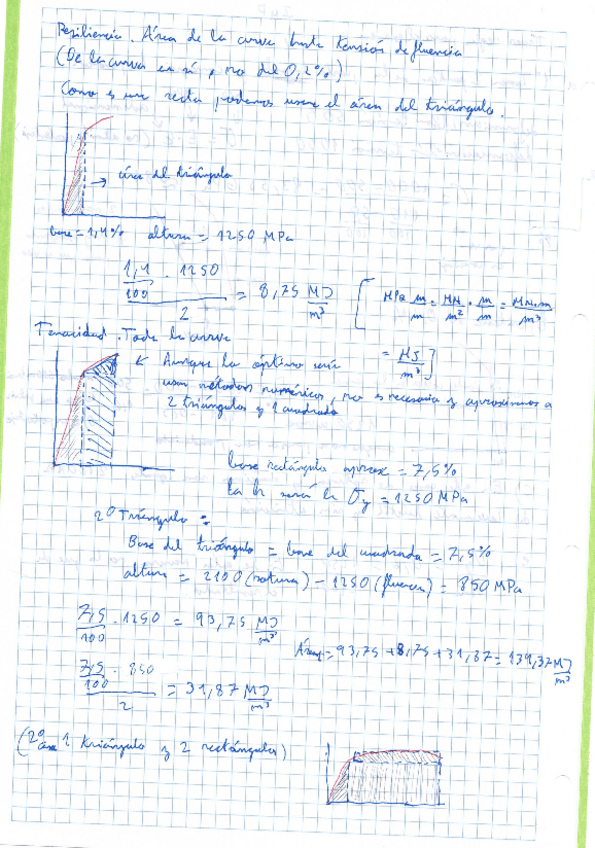 Resiliencia. Área de la curva hasta tensión de fluencia
(De la curva en sí, no del 0,2%)
Como es una recta podemos usar el área del triángulo.
→ área del triángulo
base = 1,4% altura = 1250 MPa
1,4/100 · 1250 / 2 = 8,75 MJ/m³ [MPa m/m = MN/m² · m/m = MN·m/m³
= MJ/m³]
Tenacidad. Toda la curva
← Aunque lo óptimo sería
usar métodos numéricos, no es necesario y aproximamos a
2 triángulos y 1 cuadrado
base rectángulo aprox = 7,5%
la h será la σy = 1250 MPa
2º Triángulo:
Base del triángulo = base del cuadrado = 7,5%
altura = 2100 (rotura) - 1250 (fluencia) = 850 MPa
7,5/100 · 1250 = 93,75 MJ/m³
Área = 93,75 + 8,75 + 31,87 = 134,37 MJ/m³
7,5/100 · 850 / 2 = 31,87 MJ/m³
(2º 1 triángulo y 2 rectángulos)